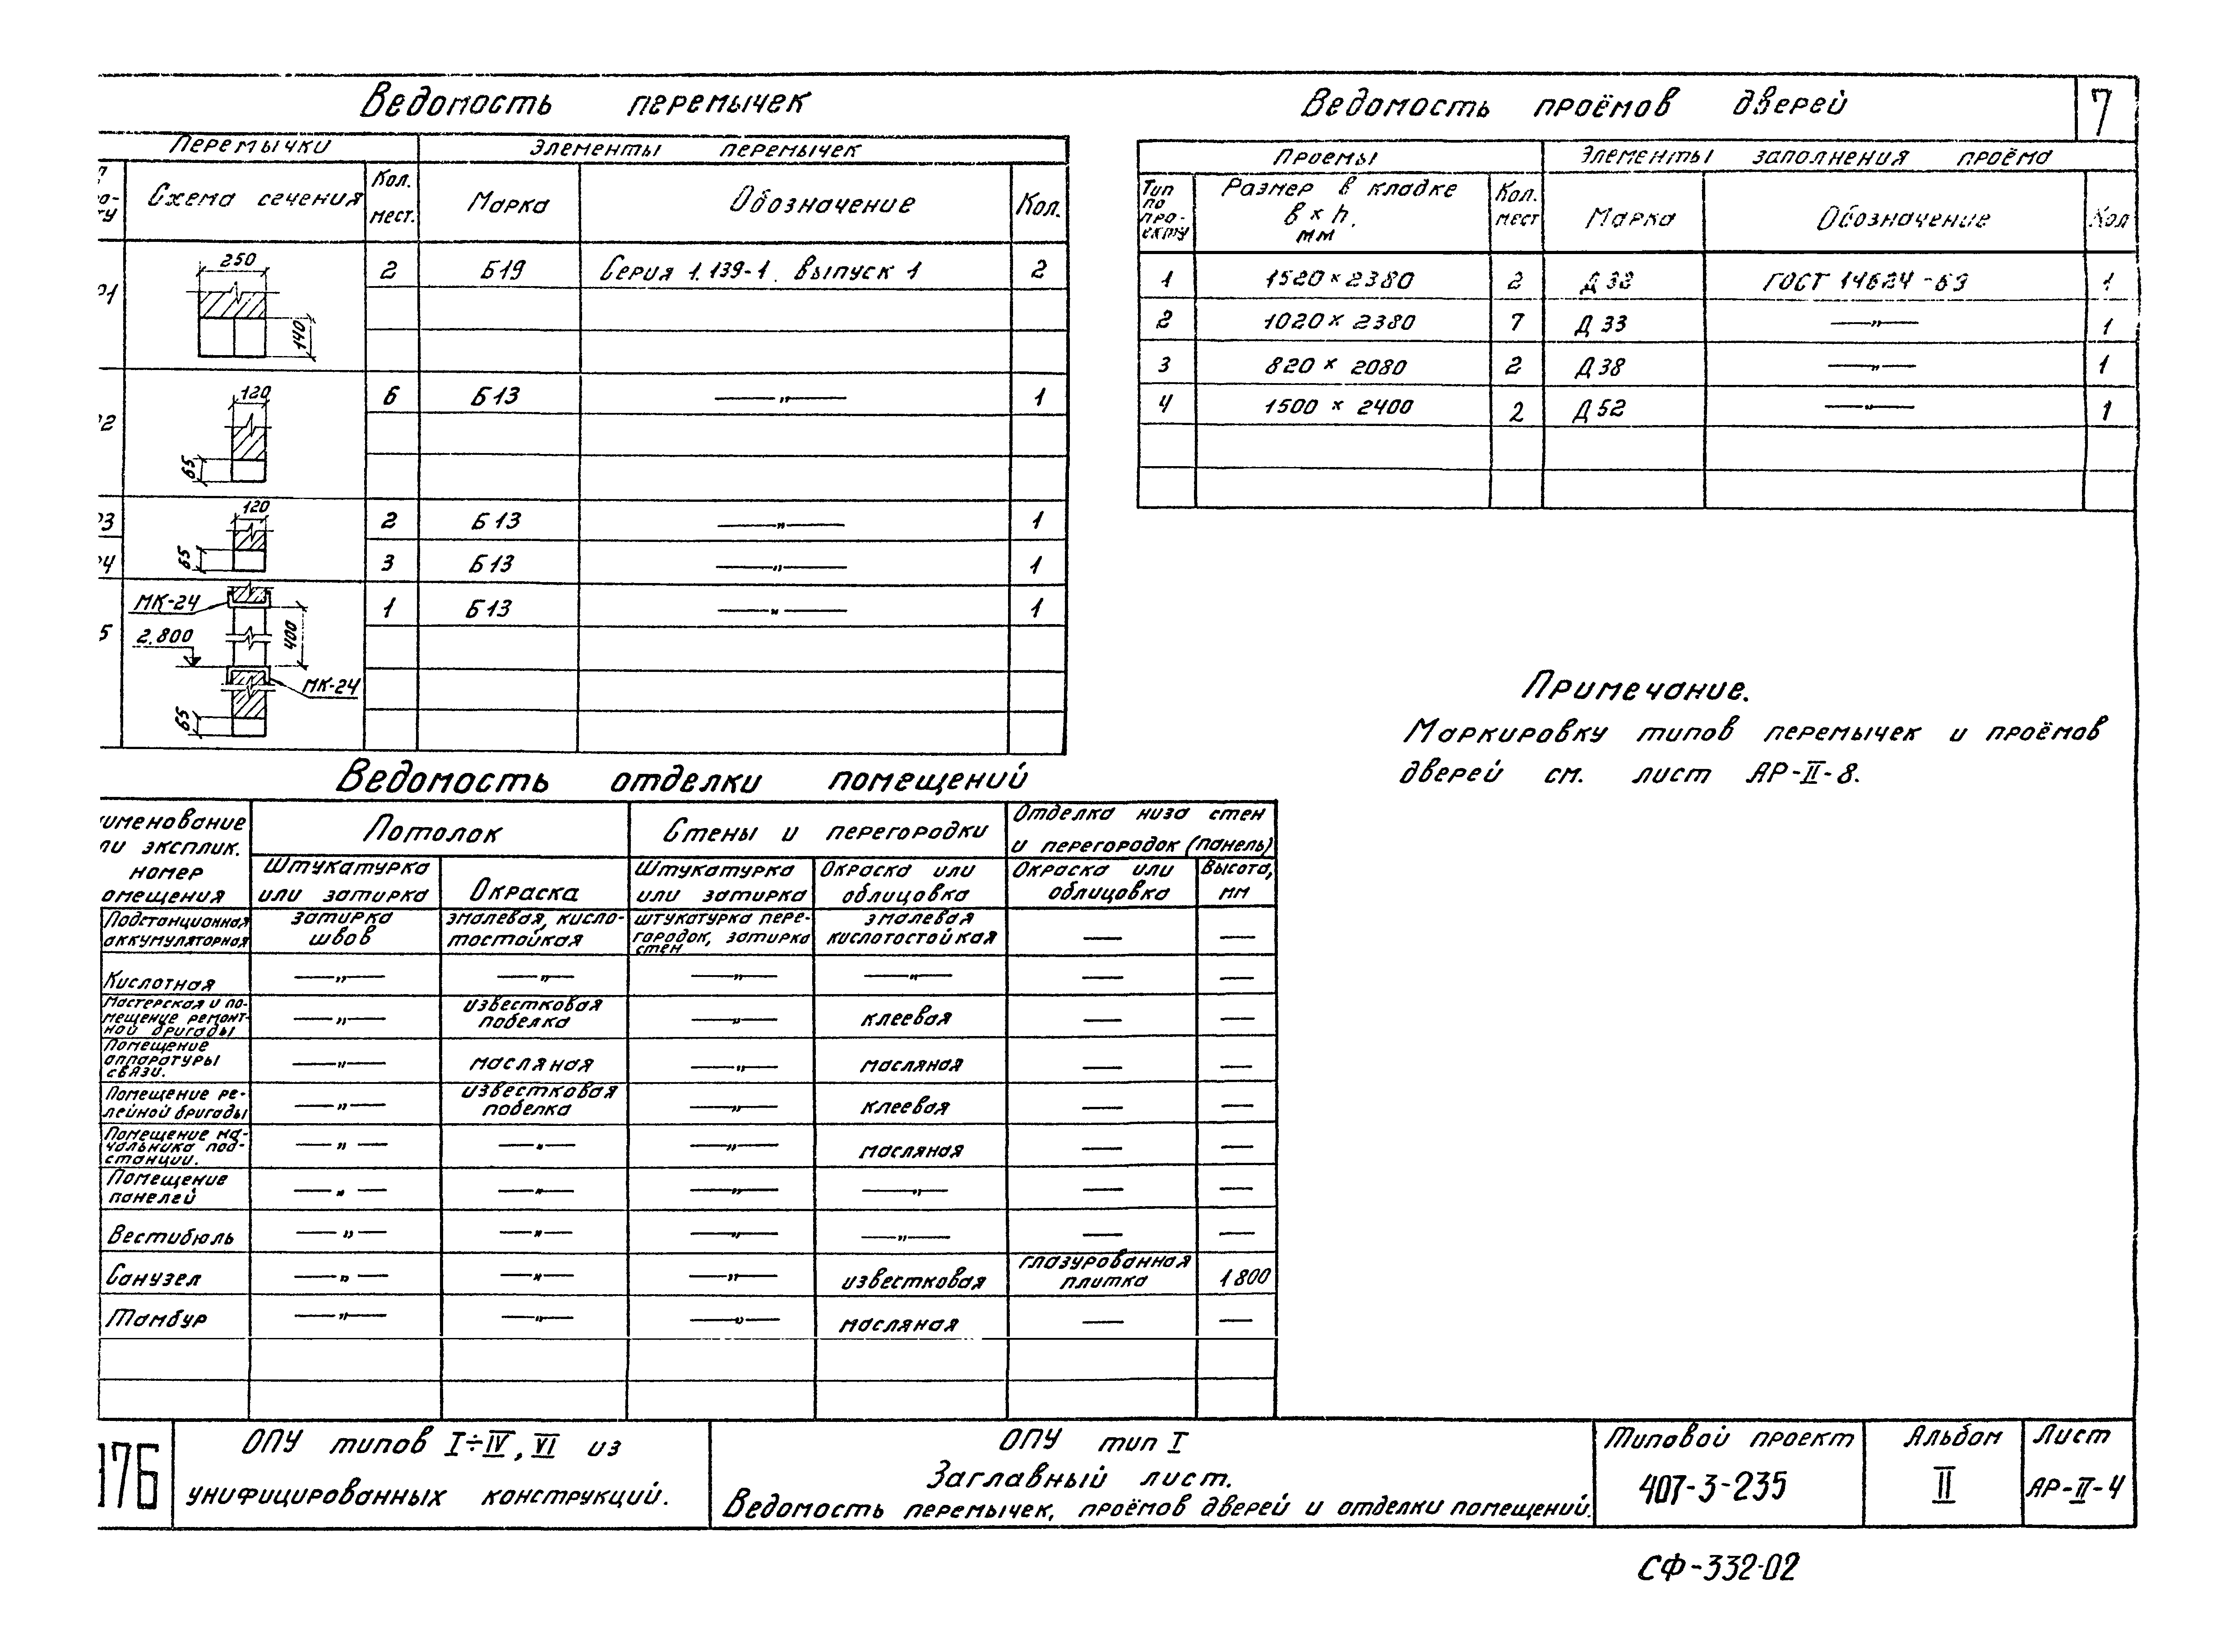 Ведомость перемычек
Перемычки
Элементы перемычек
Схема сечения
Кол. мест.
Марка
Обозначение
Кол.
250
140
2 Б19 Серия 1.139-1. Выпуск 1 2
120
65
6 Б13 —"— 1
120
65
2 Б13 —"— 1
3 Б13 —"— 1
МК-24
2.800
400
МК-24
65
5
1 Б13 —"— 1
Ведомость проёмов дверей
7
Проемы
Элементы заполнения проёма
Тип по про-екту
Размер в кладке
в × h,
мм
Кол. мест
Марка
Обозначение
Кол
1 1520×2380 2 ГОСТ 14624-69 1
2 1020×2380 7 Д33 —"— 1
3 820×2080 2 Д38 —"— 1
4 1500×2400 2 Д52 —"— 1
Примечание.
Маркировку типов перемычек и проёмов
дверей см. лист АР-II-8.
Ведомость отделки помещений
номер
Потолок
Стены и перегородки
Отделка низа стен
и перегородок (панель)
Штукатурка
или затирка
Окраска
Штукатурка
или затирка
Окраска или
облицовка
Окраска или
облицовка
Высота,
мм
Подстанционная
аккумуляторная
затирка
швов
эмалевая, кисло-
тостойкая
штукатурка пере-
городок, затирка
стен
эмалевая
кислотостойкая
— —
Кислотная —"— —"— —"— —"— — —
Мастерская и по-
мещение ремонт-
ной бригады
—"—
известковая
побелка
—"— клеевая — —
Помещение
аппаратуры
связи.
—"— масляная —"— масляная — —
Помещение ре-
лейной бригады
—"—
известковая
побелка
—"— клеевая — —
Помещение на-
чальника под-
станции.
—"— —"— —"— масляная — —
Помещение
панелей
—"— —"— —"— —"— — —
Вестибюль —"— —"— —"— —"— — —
Санузел —"— —"— —"— известковая
глазурованная
плитка
1800
Тамбур —"— —"— —"— масляная — —
ОПУ типов I÷IV, VI из
унифицированных конструкций.
ОПУ тип I
Заглавный лист.
Ведомость перемычек, проёмов дверей и отделки помещений.
Типовой проект
407-3-235
Альбом
II
Лист
АР-II-4
СФ-332-02